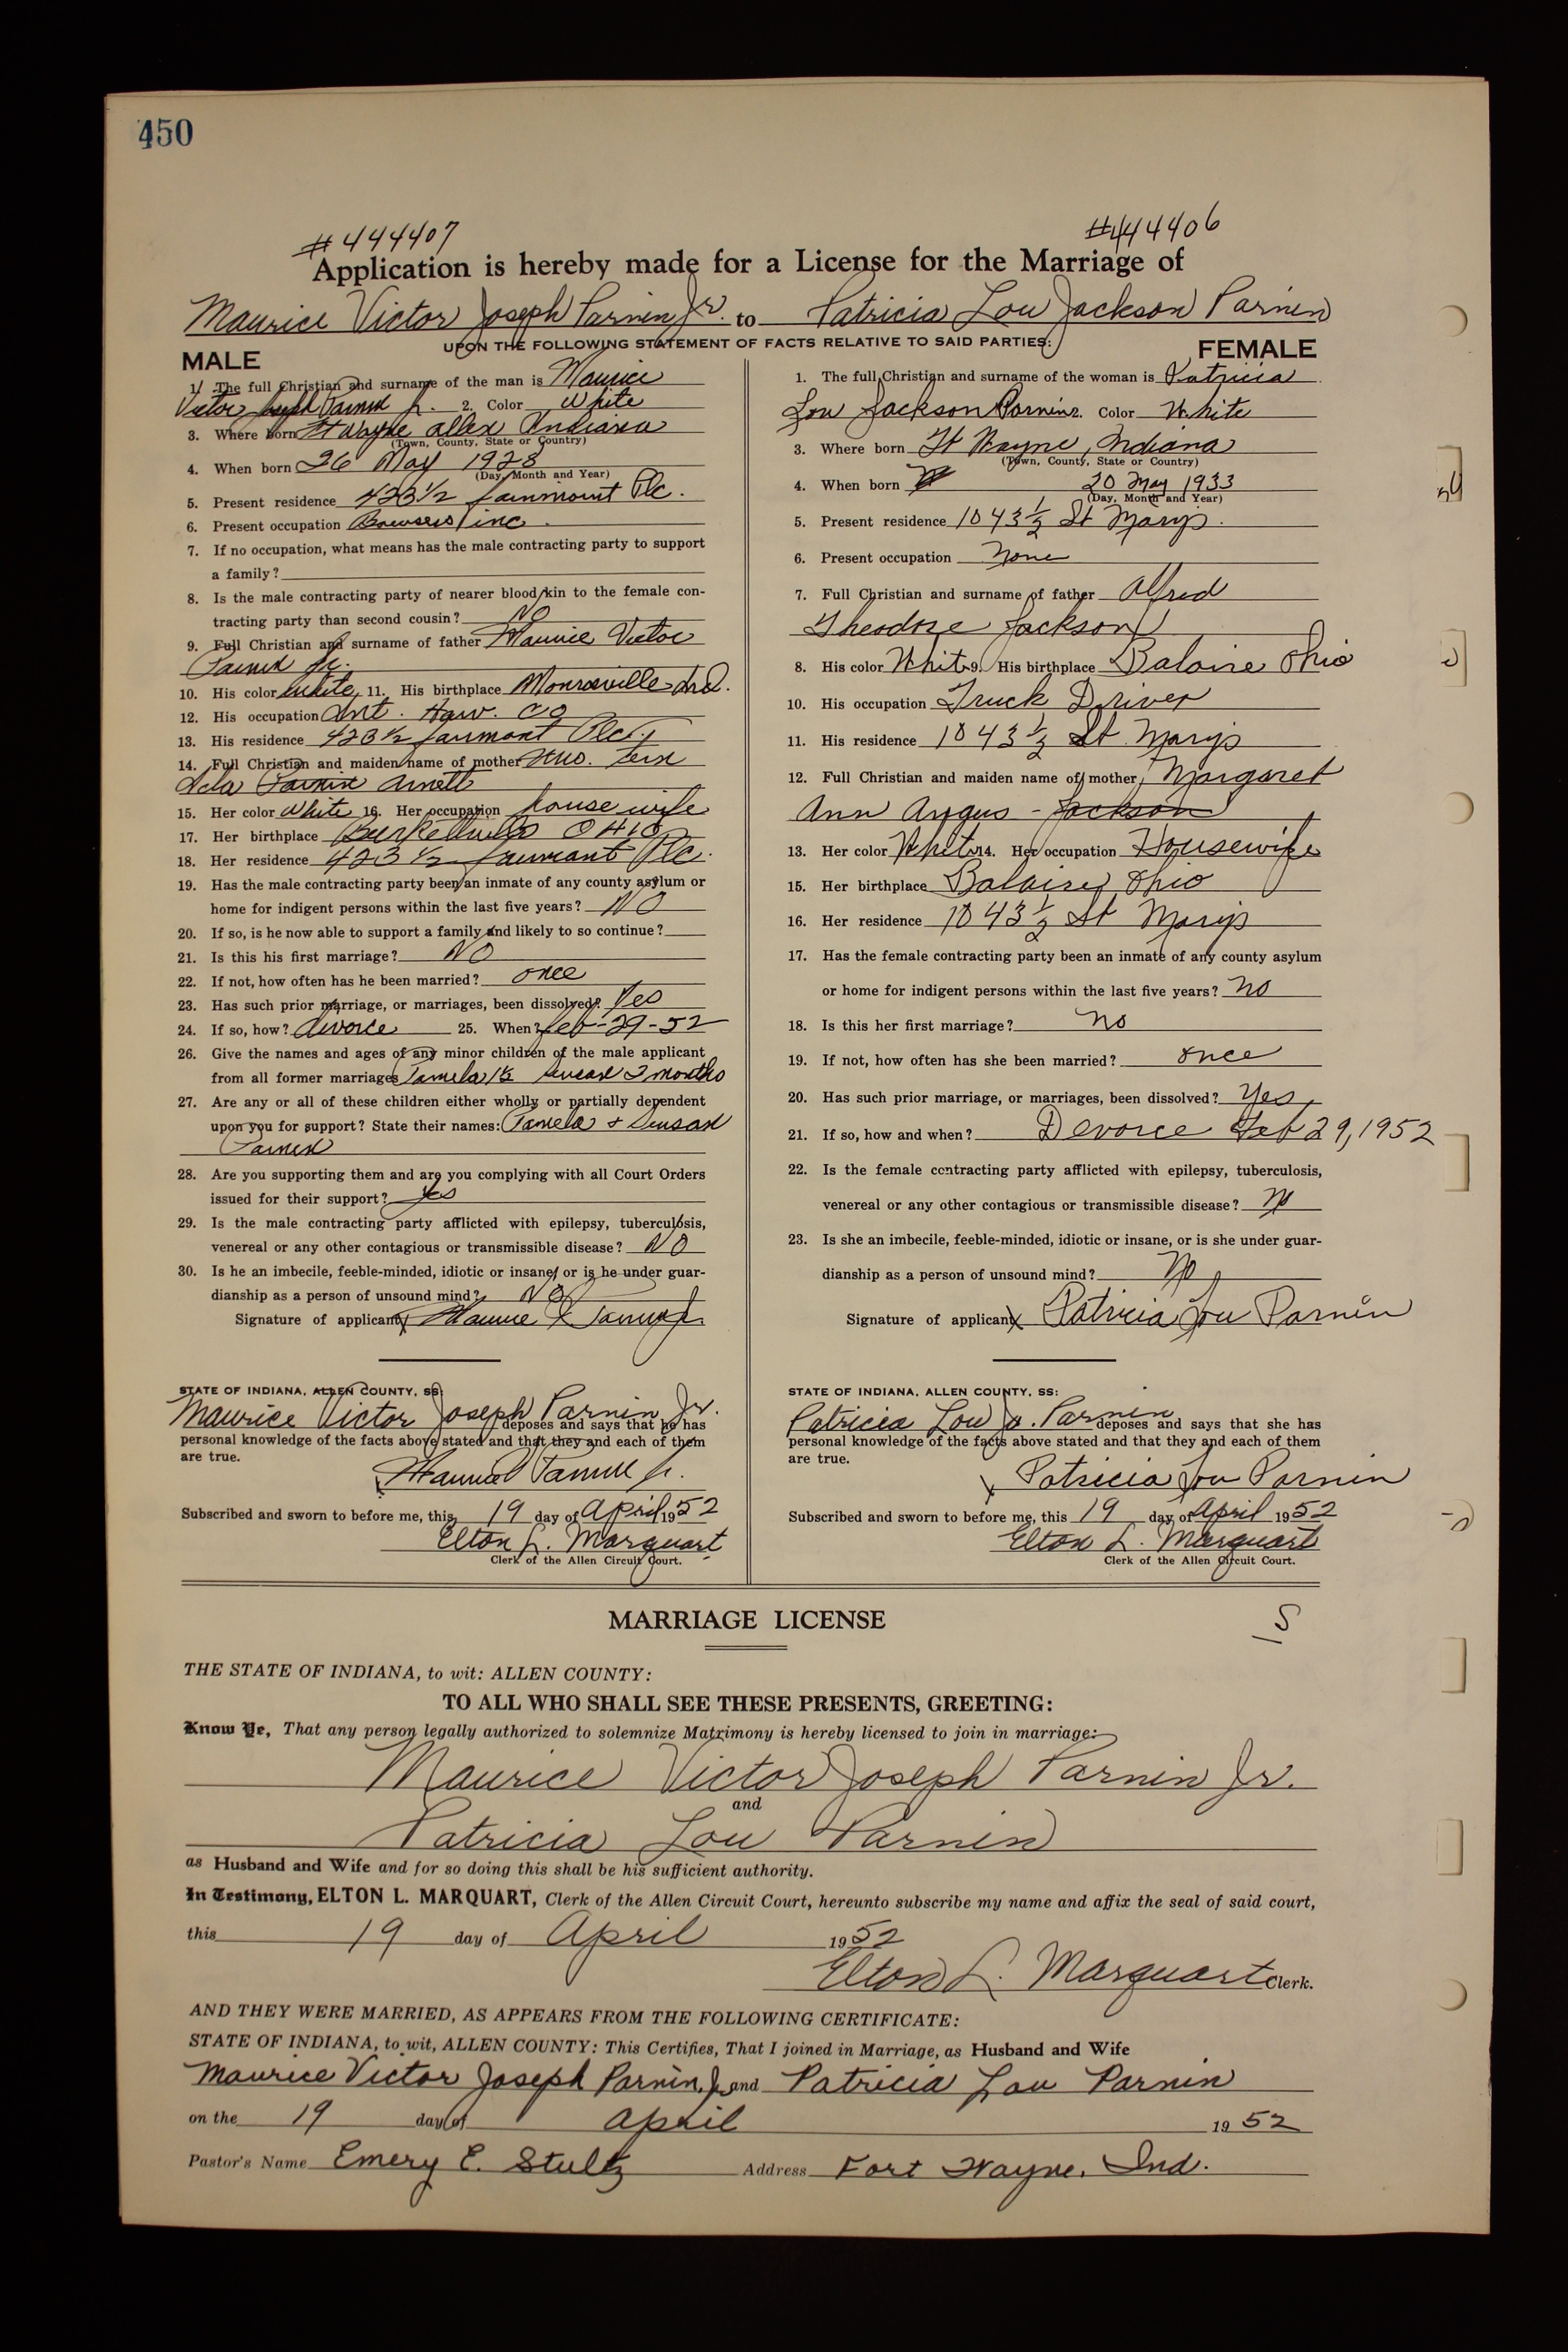 450
#444407 #444406
Application is hereby made for a License for the Marriage of
Maurice Victor Joseph Parnin Jr. to Patricia Lou Jackson Parnin
UPON THE FOLLOWING STATEMENT OF FACTS RELATIVE TO SAID PARTIES:
MALE
1. The full Christian and surname of the man is Maurice
Victor Joseph Parnin Jr. 2. Color White
3. Where born Ft Wayne Allen Indiana
(Town, County, State or Country)
4. When born 26 May 1928
(Day, Month and Year)
5. Present residence 423 1/2 Fairmount Plc.
6. Present occupation Bowsers inc
7. If no occupation, what means has the male contracting party to support
a family?
8. Is the male contracting party of nearer blood kin to the female con-
tracting party than second cousin? NO
9. Full Christian and surname of father Maurice Victor
Parnin Sr.
10. His color White 11. His birthplace Monroeville Ind.
12. His occupation Int. Harv. Co
13. His residence 423 1/2 Fairmont Plc.
14. Full Christian and maiden name of mother Mrs. Fern
Lela Parnin Arnett
15. Her color White 16. Her occupation house wife
17. Her birthplace Burkettville OHIO
18. Her residence 423 1/2 Fairmont Plc.
19. Has the male contracting party been an inmate of any county asylum or
home for indigent persons within the last five years? NO
20. If so, is he now able to support a family and likely to so continue?
21. Is this his first marriage? NO
22. If not, how often has he been married? once
23. Has such prior marriage, or marriages, been dissolved? Yes
24. If so, how? divorce 25. When? Feb-29-52
26. Give the names and ages of any minor children of the male applicant
from all former marriages Pamela 1½ Susan 2 months
27. Are any or all of these children either wholly or partially dependent
upon you for support? State their names: Pamela + Susan
Parnin
28. Are you supporting them and are you complying with all Court Orders
issued for their support? Yes
29. Is the male contracting party afflicted with epilepsy, tuberculosis,
venereal or any other contagious or transmissible disease? NO
30. Is he an imbecile, feeble-minded, idiotic or insane, or is he under guar-
dianship as a person of unsound mind? NO
Signature of applicant X Maurice Parnin Jr
STATE OF INDIANA, ALLEN COUNTY, SS:
Maurice Victor Joseph Parnin Jr.
deposes and says that he has
personal knowledge of the facts above stated and that they and each of them
are true.
Maurice Parnin Jr.
Subscribed and sworn to before me, this 19 day of April 1952
Elton L. Marquart
Clerk of the Allen Circuit Court.
FEMALE
1. The full Christian and surname of the woman is Patricia
Lou Jackson Parnin 2. Color White
3. Where born Ft Wayne, Indiana
(Town, County, State or Country)
4. When born 20 May 1933
(Day, Month and Year)
5. Present residence 1043 1/2 St Marys.
6. Present occupation none
7. Full Christian and surname of father Alfred
Theodore Jackson
8. His color White 9. His birthplace Balaire Ohio
10. His occupation Truck Driver
11. His residence 1043 1/2 St. Marys
12. Full Christian and maiden name of mother Margaret
Ann Angus - Jackson
13. Her color White 14. Her occupation Housewife
15. Her birthplace Balaire, Ohio
16. Her residence 1043 1/2 St Marys
17. Has the female contracting party been an inmate of any county asylum
or home for indigent persons within the last five years? no
18. Is this her first marriage? no
19. If not, how often has she been married? once
20. Has such prior marriage, or marriages, been dissolved? Yes
21. If so, how and when? Devorce Feb 29, 1952
22. Is the female contracting party afflicted with epilepsy, tuberculosis,
venereal or any other contagious or transmissible disease? no
23. Is she an imbecile, feeble-minded, idiotic or insane, or is she under guar-
dianship as a person of unsound mind? no
Signature of applicant X Patricia Lou Parnin
STATE OF INDIANA, ALLEN COUNTY, SS:
Patricia Lou J. Parnin deposes and says that she has
personal knowledge of the facts above stated and that they and each of them
are true.
X Patricia Lou Parnin
Subscribed and sworn to before me, this 19 day of April 1952
Elton L. Marquart
Clerk of the Allen Circuit Court.
MARRIAGE LICENSE
S
THE STATE OF INDIANA, to wit: ALLEN COUNTY:
TO ALL WHO SHALL SEE THESE PRESENTS, GREETING:
Know Ye, That any person legally authorized to solemnize Matrimony is hereby licensed to join in marriage:
Maurice Victor Joseph Parnin Jr.
and
Patricia Lou Parnin
as Husband and Wife and for so doing this shall be his sufficient authority.
In Testimony, ELTON L. MARQUART, Clerk of the Allen Circuit Court, hereunto subscribe my name and affix the seal of said court,
this 19 day of April 1952
Elton L. Marquart Clerk.
AND THEY WERE MARRIED, AS APPEARS FROM THE FOLLOWING CERTIFICATE:
STATE OF INDIANA, to wit, ALLEN COUNTY: This Certifies, That I joined in Marriage, as Husband and Wife
Maurice Victor Joseph Parnin, Jr. and Patricia Lou Parnin
on the 19 day of April 1952
Pastor's Name Emery E. Stultz Address Fort Wayne, Ind.